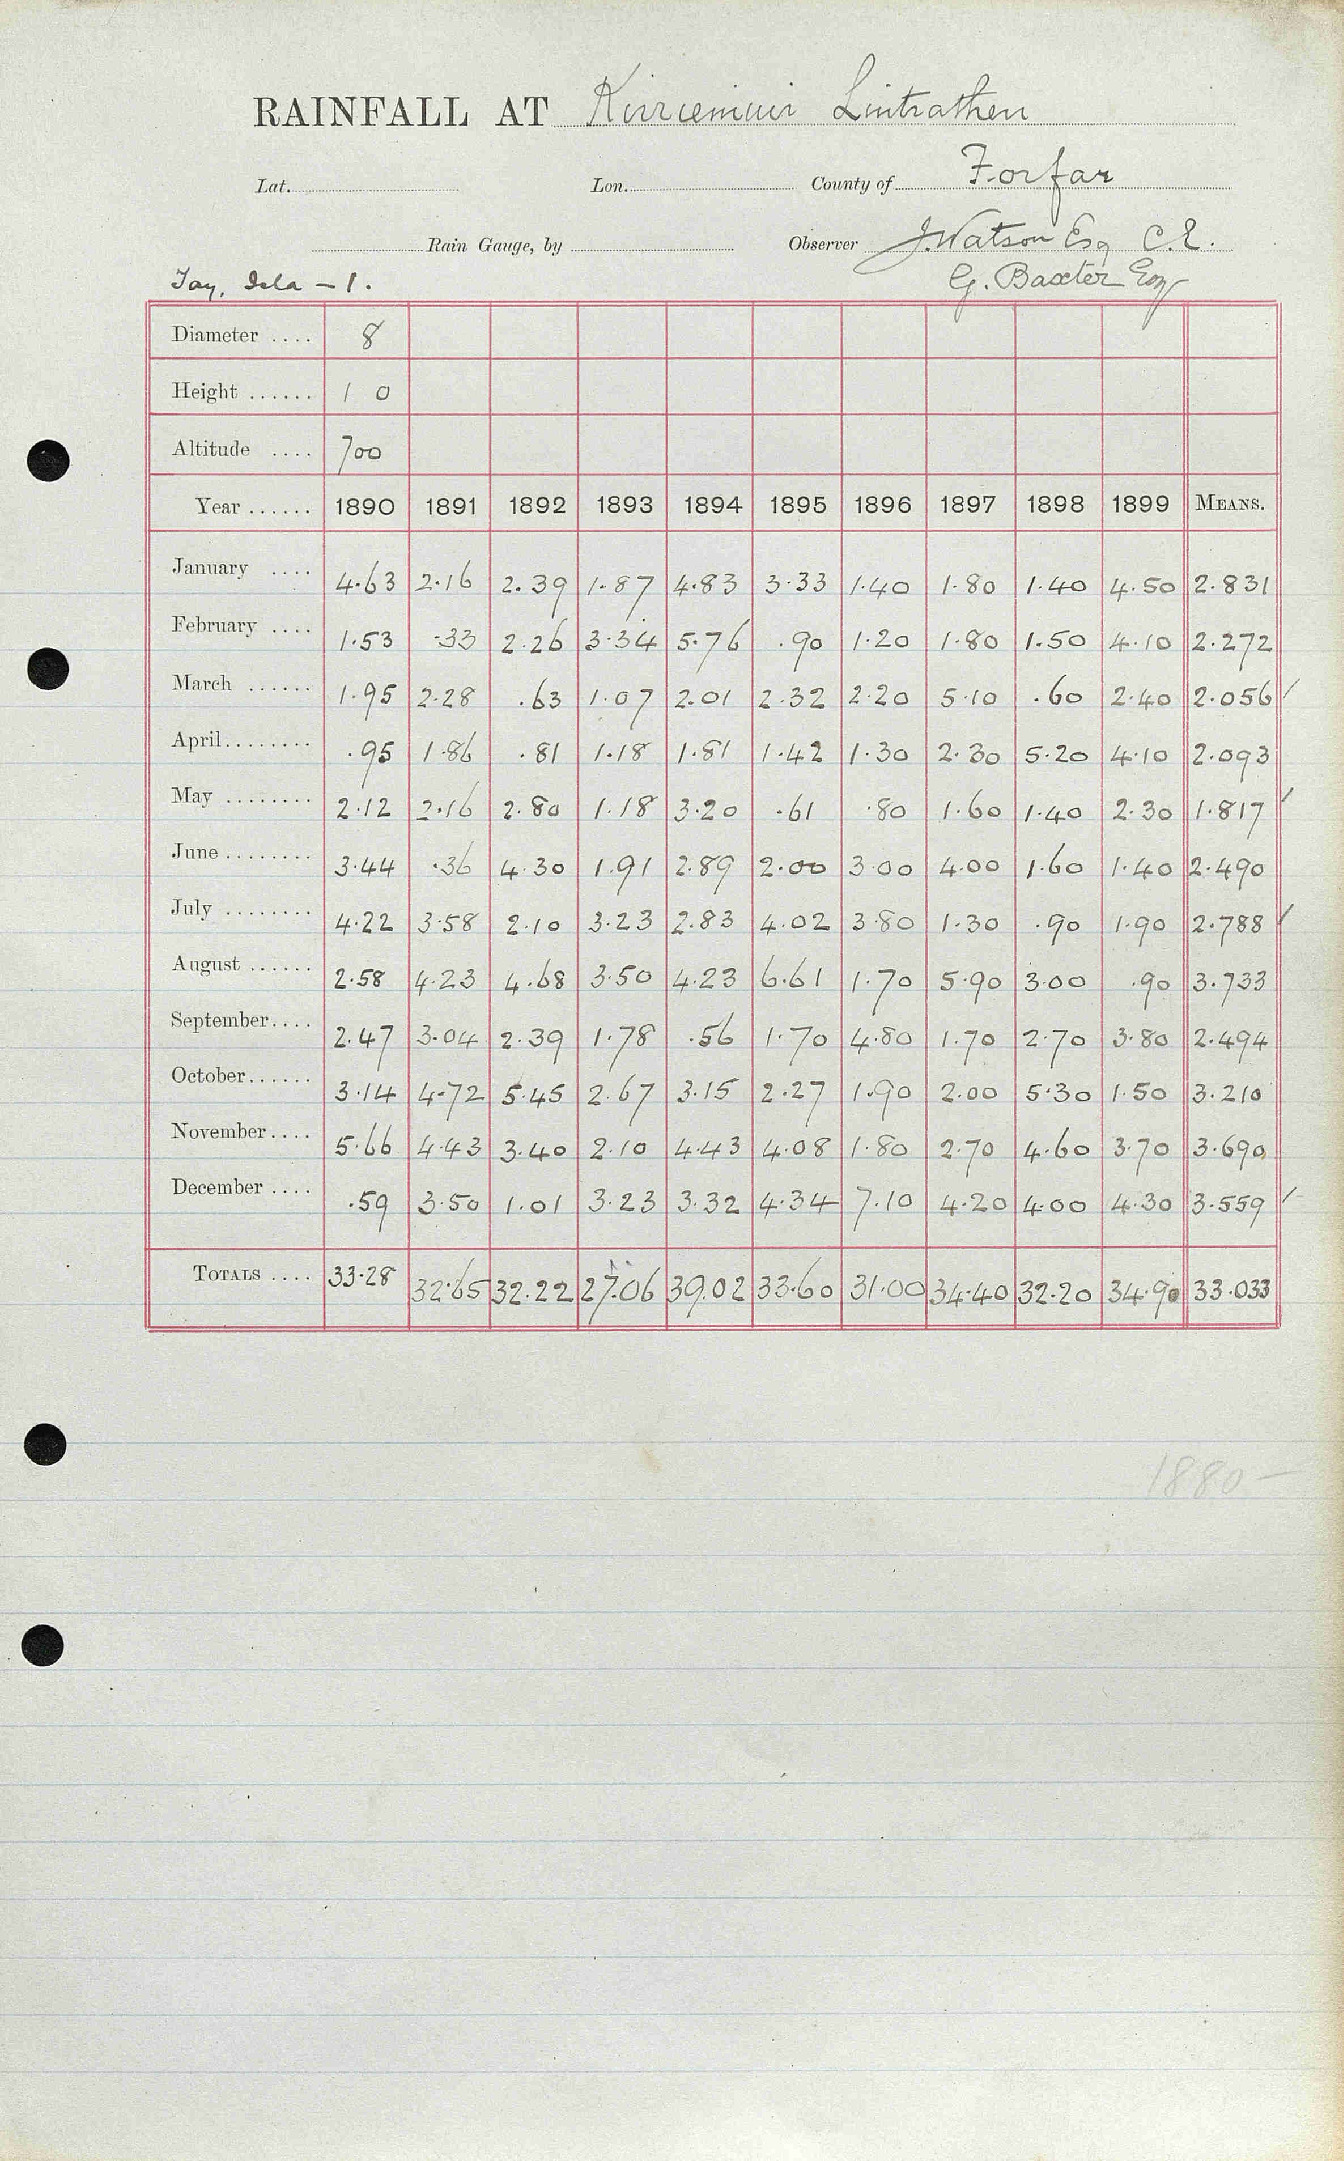 RAINFALL AT Kirriemuir Lintrathen
Lat. Lon. County of Forfar
Rain Gauge, by Observer J. Watson Esq C.E.
Tay, Isla - 1. G. Baxter Esq
Diameter .... 8
Height ...... 1 0
Altitude .... 700
Year ...... 1890 1891 1892 1893 1894 1895 1896 1897 1898 1899 MEANS.
January .... 4.63 2.16 2.39 1.87 4.83 3.33 1.40 1.80 1.40 4.50 2.831
February .... 1.53 .33 2.26 3.34 5.76 .90 1.20 1.80 1.50 4.10 2.272
March ...... 1.95 2.28 .63 1.07 2.01 2.32 2.20 5.10 .60 2.40 2.056
April........ .95 1.86 .81 1.18 1.81 1.42 1.30 2.30 5.20 4.10 2.093
May ........ 2.12 2.16 2.80 1.18 3.20 .61 .80 1.60 1.40 2.30 1.817
June........ 3.44 .36 4.30 1.91 2.89 2.00 3.00 4.00 1.60 1.40 2.490
July ........ 4.22 3.58 2.10 3.23 2.83 4.02 3.80 1.30 .90 1.90 2.788
August ...... 2.58 4.23 4.68 3.50 4.23 6.61 1.70 5.90 3.00 .90 3.733
September.... 2.47 3.04 2.39 1.78 .56 1.70 4.80 1.70 2.70 3.80 2.494
October...... 3.14 4.72 5.45 2.67 3.15 2.27 1.90 2.00 5.30 1.50 3.210
November.... 5.66 4.43 3.40 2.10 4.43 4.08 1.80 2.70 4.60 3.70 3.690
December .... .59 3.50 1.01 3.23 3.32 4.34 7.10 4.20 4.00 4.30 3.559
TOTALS .... 33.28 32.65 32.22 27.06 39.02 33.60 31.00 34.40 32.20 34.90 33.033
1880-